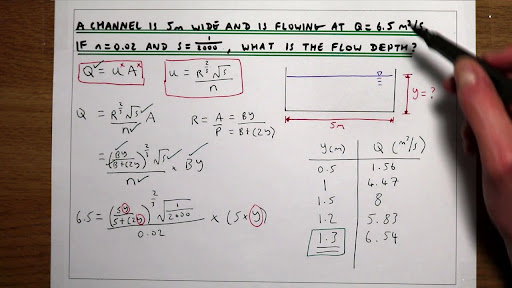 A CHANNEL IS 5m WIDE AND IS FLOWING AT Q = 6.5 m³/s.
IF n = 0.02 AND S = 1/2000, WHAT IS THE FLOW DEPTH?
Q = u A
u = R^(2/3) √S / n
y = ?
5m
Q = R^(2/3) √S / n A
R = A/P = By / B+(2y)
= (By / B+(2y))^(2/3) √S / n × By
6.5 = (5y / 5+(2y))^(2/3) √(1/2000) / 0.02 × (5×y)
y (m) Q (m³/s)
0.5 1.56
1 4.47
1.5 8
1.2 5.83
1.3 6.54